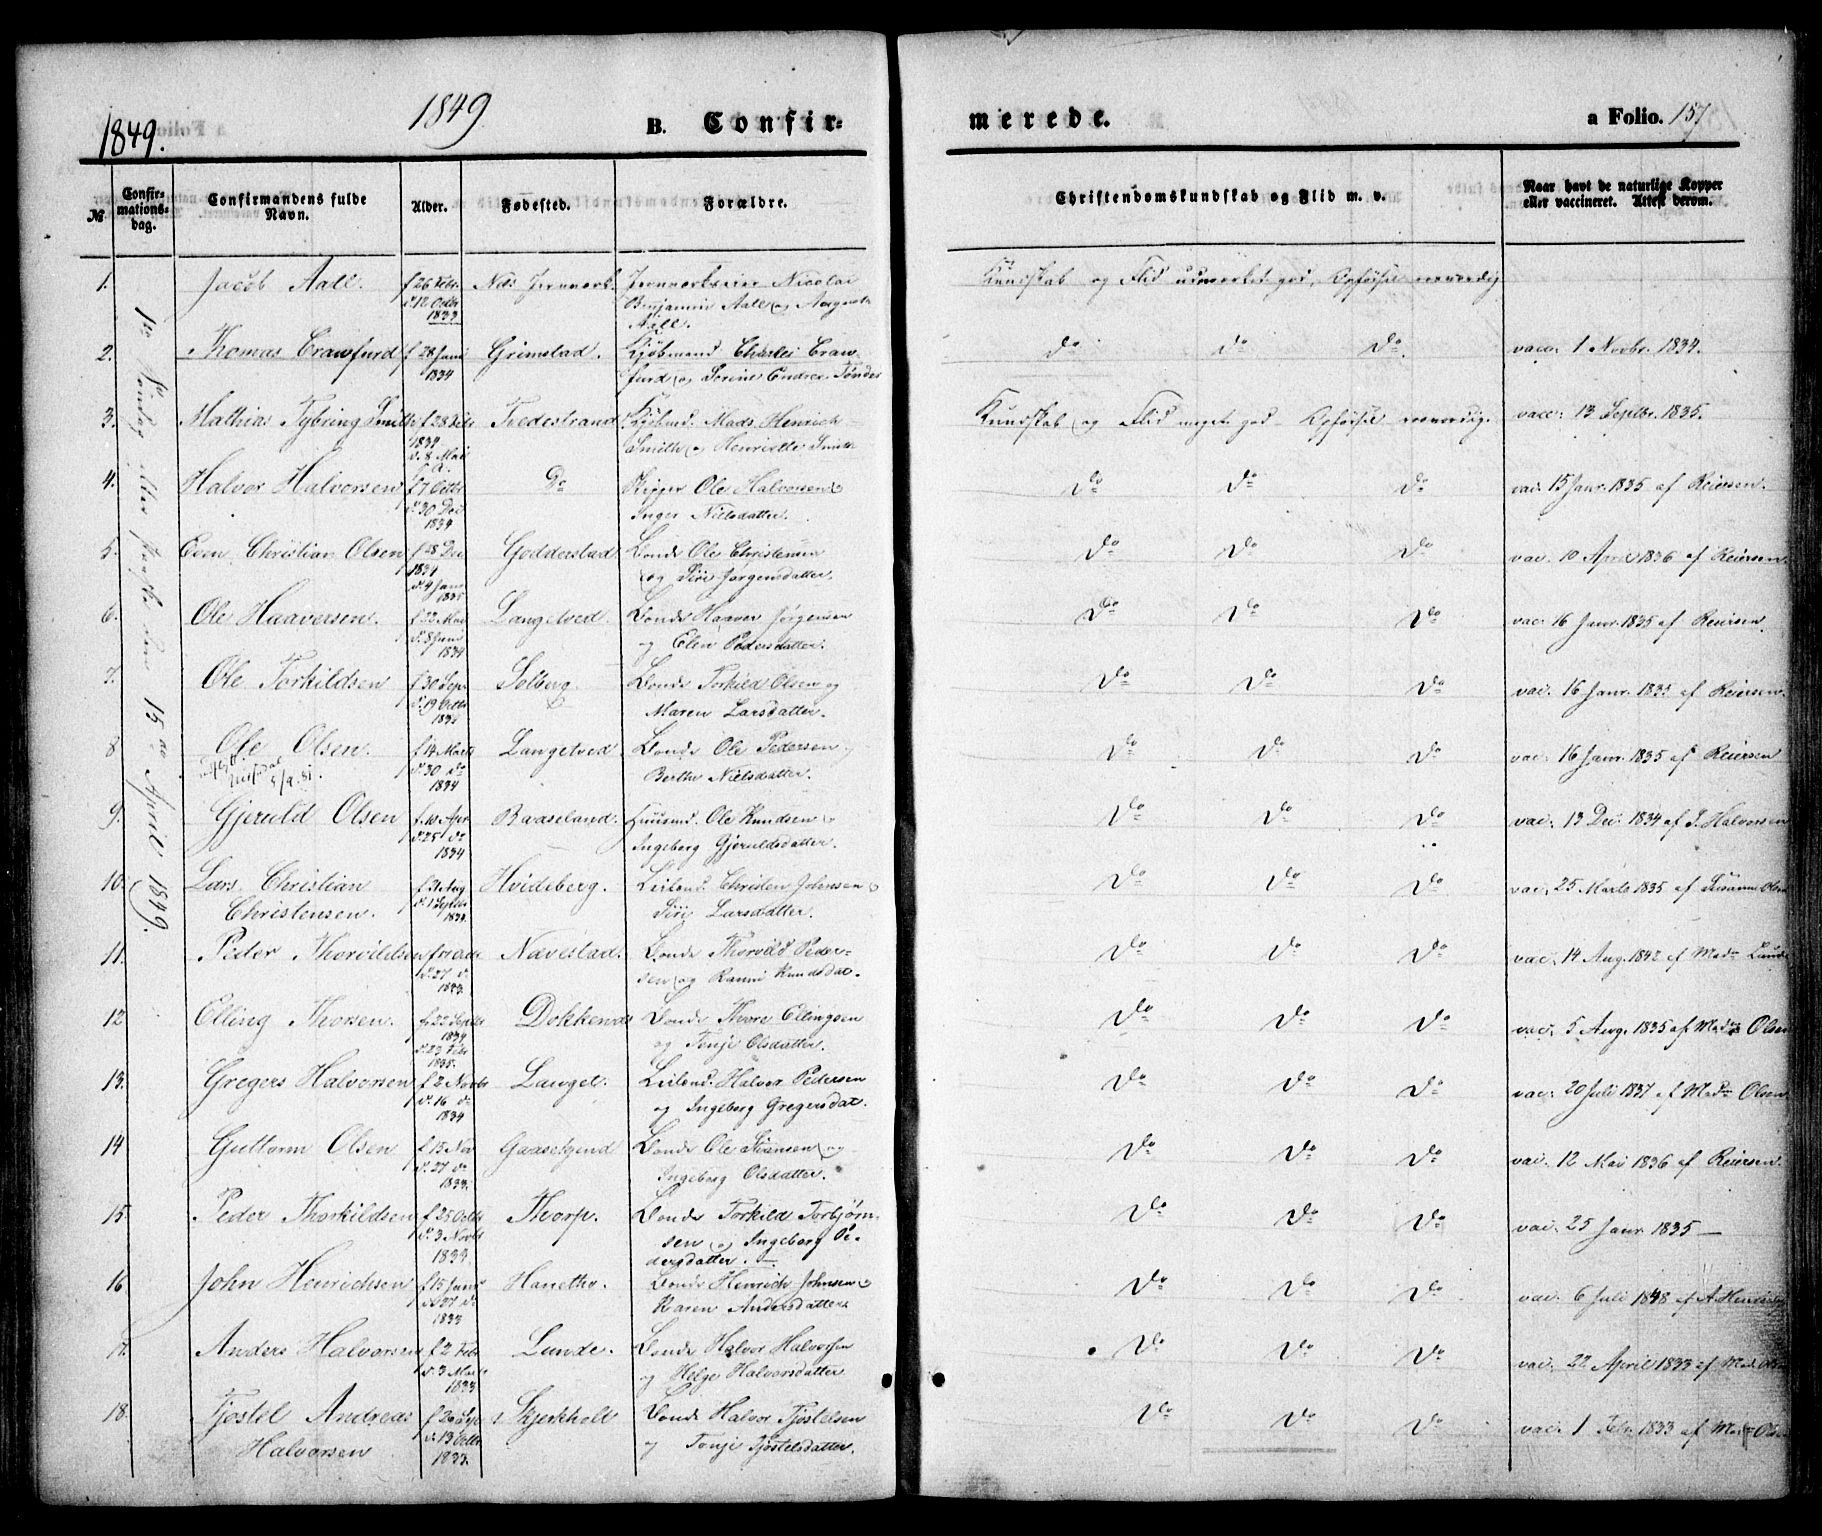 1849.
1849
B. Confir-
merede.
a Folio. 157
№
Confir-
mations-
dag.
Confirmandens fulde
Navn.
Alder.
Fødested.
Forældre.
Christendomskundskab og Flid m. v.
Naar havt de naturlige Kopper
eller vaccineret. Attest derom.
1ste Søndag efter Paaske den 15de April 1849.
1. Jacob Aall. f 26 Febr. Næs Jernverk. Jernverkseier Nicolai Kundskab og Flid udmærket god, Opførsel rosværdig
d. 12 Octbr Benjamin Aall og
1833 Aall.
2. Thomas Crawfurd f 28 Juni Grimstad. Kjøbmand Charles Craw- Do Do Do vacc. 1 Novbr. 1834.
1834 furd og Serine Endres Tønder
3. Mathias Tybring Smith f 28 Febr Tvedestrand Kjøbmd. Mads Henrich Kundskab og Flid meget god - Opførsel rosværdig. vacc: 13 Septbr. 1835.
1834 Smith og Henriette Smith
d. 8 Mai
4. Halvor Halvorsen f 7 Octbr Do Skipper Ole Halvorsen og Do Do Do vac: 15 Janr. 1835 af Reiersen.
d. 30 Dec Inger Nielsdatter.
1834
5. Even Christian Olsen f 28 Dec Godderstad Bonde Ole Christensen Do Do Do vac. 10 April 1836 af Reiersen
1834 og Siri Jørgensdatter.
d. 4 Janr
1835
6. Ole Haaversen. f 22 Mai Langetved. Bonde Haaver Jørgensen Do Do Do vac: 16 Janr. 1835 af Reiersen.
d. 8 Juni og Elen Pedersdatter.
1834
7. Ole Torkildsen f 30 Sept Solberg. Bonde Torkild Olsen og Do Do Do vac. 16 Janr. 1835 af Reiersen.
d. 19 Octbr Maren Larsdatter.
1834
8 Ole Olsen. f 14 Marts Langetved Bonde Ole Pedersen og Do Do Do vac: 16 Janr. 1835 af Reiersen
5/9.81. d. 30 do Berthe Nielsdatter.
1834
9. Gjeruld Olsen f. 10 Apr Baaseland. Huusmd. Ole Knudsen og Do Do Do vac: 13 Dec: 1834 af J. Halvorsen
d. 25 do Ingeborg Gjeruldsdatter.
1834
10. Lars Christian f 21 Aug Hvideberg. Leilend. Christen Johnsen og Do Do Do vac. 25 Marts 1835 af Susanne Olsen
Christensen. d. 1 Septbr Siri Larsdatter.
1834.
11. Peder Thorvildsen Navestad. Bonde Thorvild Peder- Do Do Do vac. 14 Aug. 1842 af Mad. Lunde
d. 27 do sen og Ranni Knudsdat-
1833
12 Elling Thorsen. f. 22 Septbr Dokkenæs Bonde Thore Ellingsen Do Do Do vac. 5 Aug. 1835 af Mad. Olsen
1834 og Tonje Olsdatter.
d. 23 Febr
1835.
13. Gregers Halvorsen f 2 Novbr Langel. Leilend. Halvor Pedersen Do Do Do vac: 20 Juli 1837 af Mad. Olsen
d. 16 do og Ingeborg Gregersdat.
1834
14 Guttorm Olsen f. 15 Nov Gaasekjend Bonde Ole Svensen og Do Do Do vac: 12 Mai 1836 af Reiersen.
d. 27 do Ingeborg Olsdatter.
1833.
15. Peder Thorkildsen f 25 Octbr Thorp. Bonde Torkild Torbjørn- Do Do Do vac: 25 Janr 1835 —
d. 3 Novbr sen og Ingeborg Pe-
1833 dersdatter. —
16 John Henrichsen f 15 Janr Hanetho. Bonde Henrich Johnsen og Do Do Do vac. 6 Juli 1848 af A.
d. 27 do Karen Andersdatter
1833
17. Anders Halvorsen f 2 Febr Lunde. Bonde Halvor Halvorsen Do Do Do vac. 22 April 1833 af Mad. Olsen
d. 3 Marts og Helge Halvorsdatter
1833
18. Tjostel Andreas f 26 Sept Skjerkholt Bonde Halvor Tjostelsen Do Do Do vac. 1 Febr. 1833 af Mad. Olsen
Halvorsen d. 13 Octbr og Tonje Tjostelsdatter.
1833.